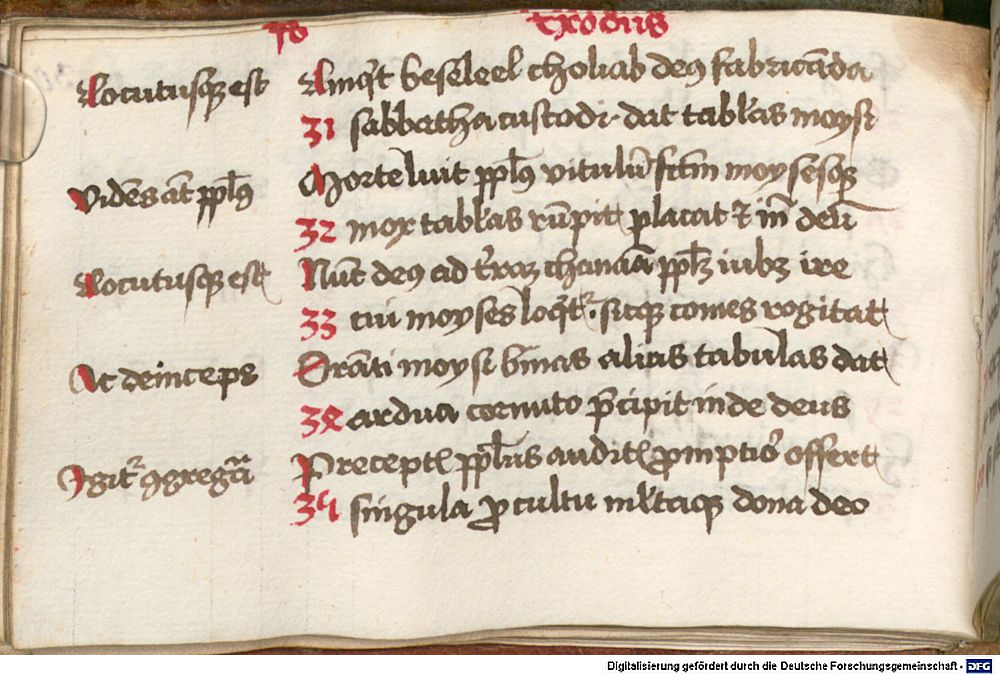 Exodus
Locutusqꝫ est
Linqͥt beseleel eholiab deꝰ fabricāda
31 sabbatha custodi · dat tablas moysi
Vidēs āt ppl̄s
Morte luit ppl̄s vitulū fc̄m moysesqꝫ
32 mox tablas rūpit placat deū
Locutusqꝫ est
Nūt deꝰ ad tr̄aꝫ chanaā ppl̄ꝫ iubꝫ ire
33 cui moyses loqͥtr · sicqꝫ comes rogitat
Ac deinceps
Orāti moysi binas alias tabulas dat
34 ardua cornuto p̄cipit inde deus
Igitr ꝯgregata
Precepta ppl̄us auditꝭ ꝓmptiꝰ offert
35 singula ꝓ cultu ml̄taqꝫ dona deo
Digitalisierung gefördert durch die Deutsche Forschungsgemeinschaft - DFG